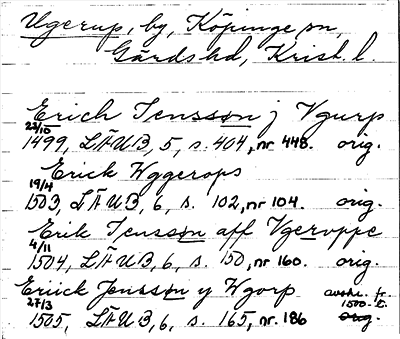 Ugerup, by, Köpinge sn,
Gärds hd, Krist. l.
Erich Jensson j Vgurp
23/10
1499, LÄUB, 5, s. 404, nr 448. orig.
Erick Wggerops
19/4
1503, LÄUB, 6, s. 102, nr 104. orig.
Erik Jensson aff Vgeroppe
4/11
1504, LÄUB, 6, s. 150, nr 160. orig.
Eriick Jensson y Wgorp avskr. fr.
27/3 1500-t.
1505, LÄUB, 6, s. 165, nr. 186 orig.